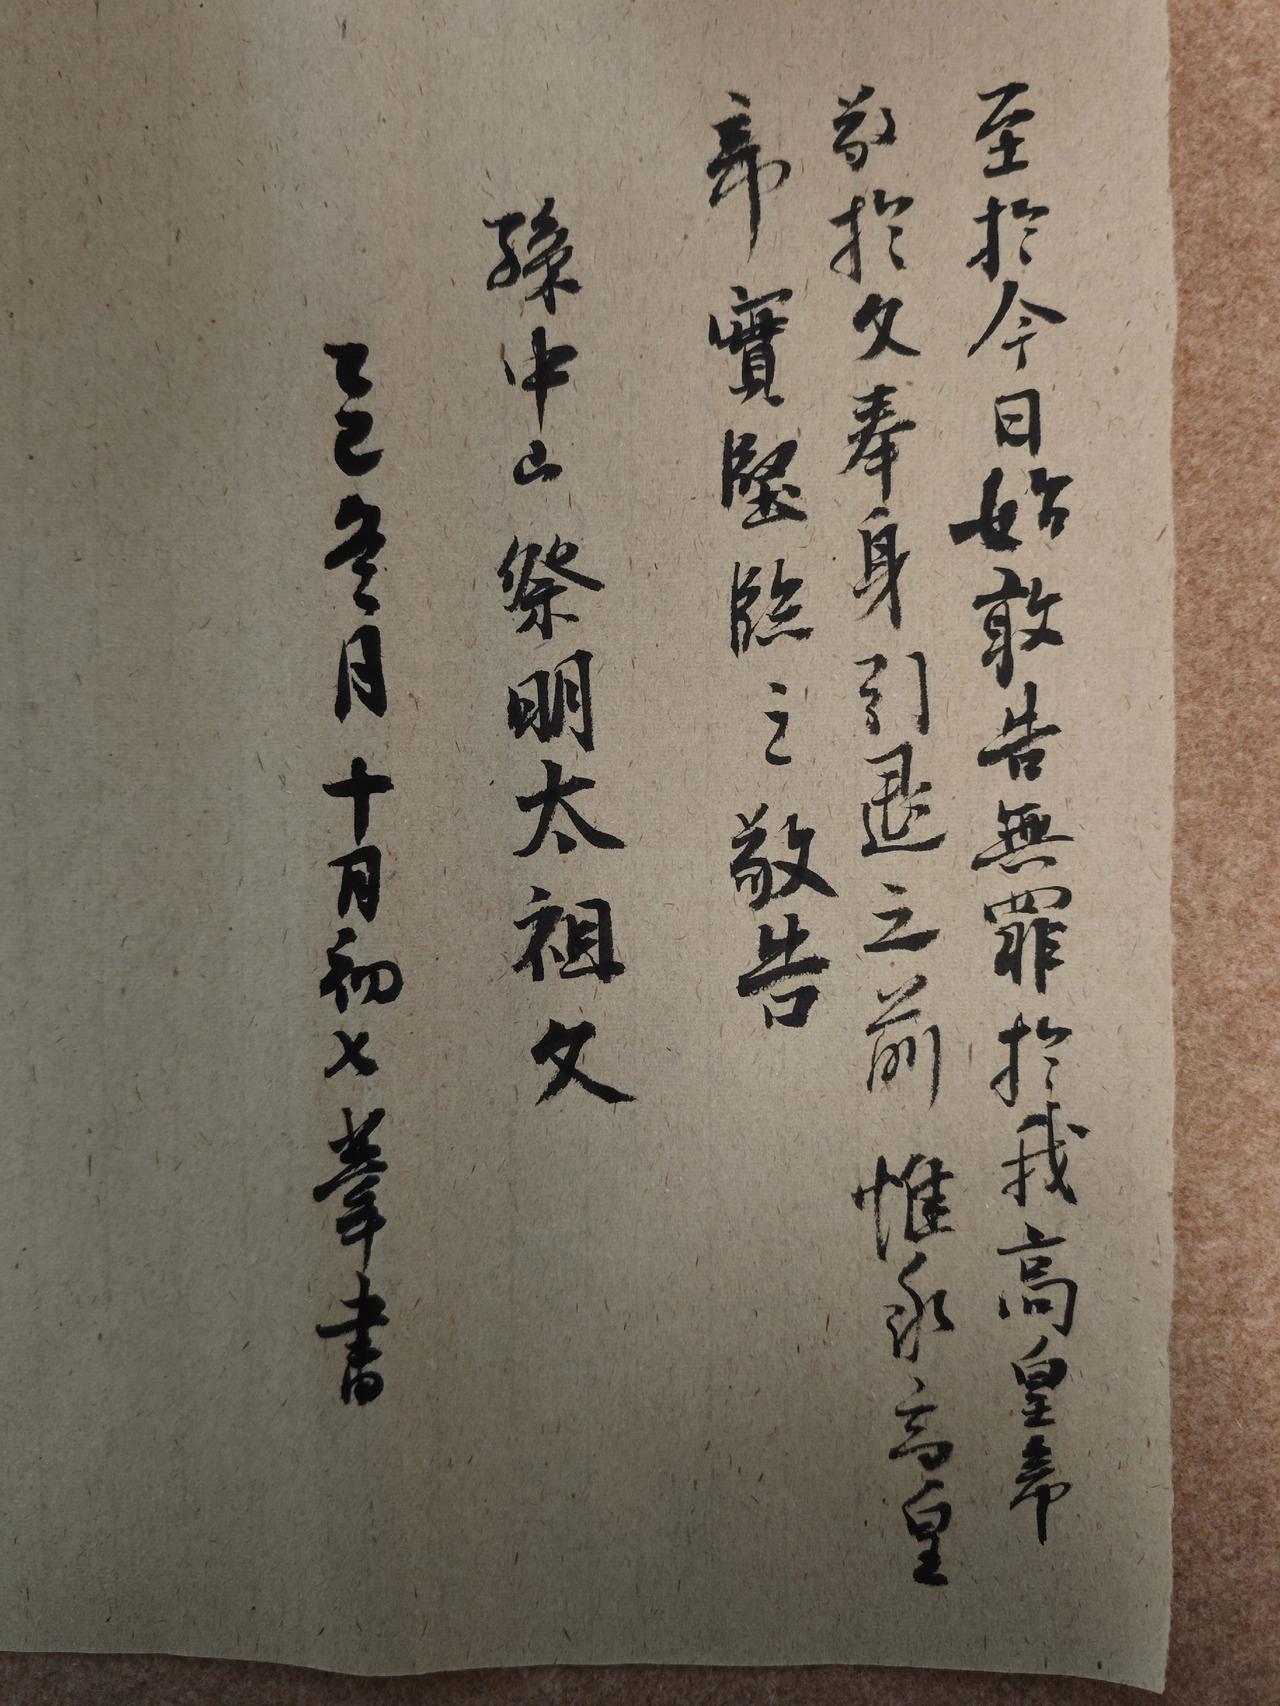 至於今日始敢告無罪於我高皇帝
敬於文奉身引退之前惟永高皇
帝實鑒臨之敬告
孫中山祭明太祖文
乙巳冬月十月初七拳書